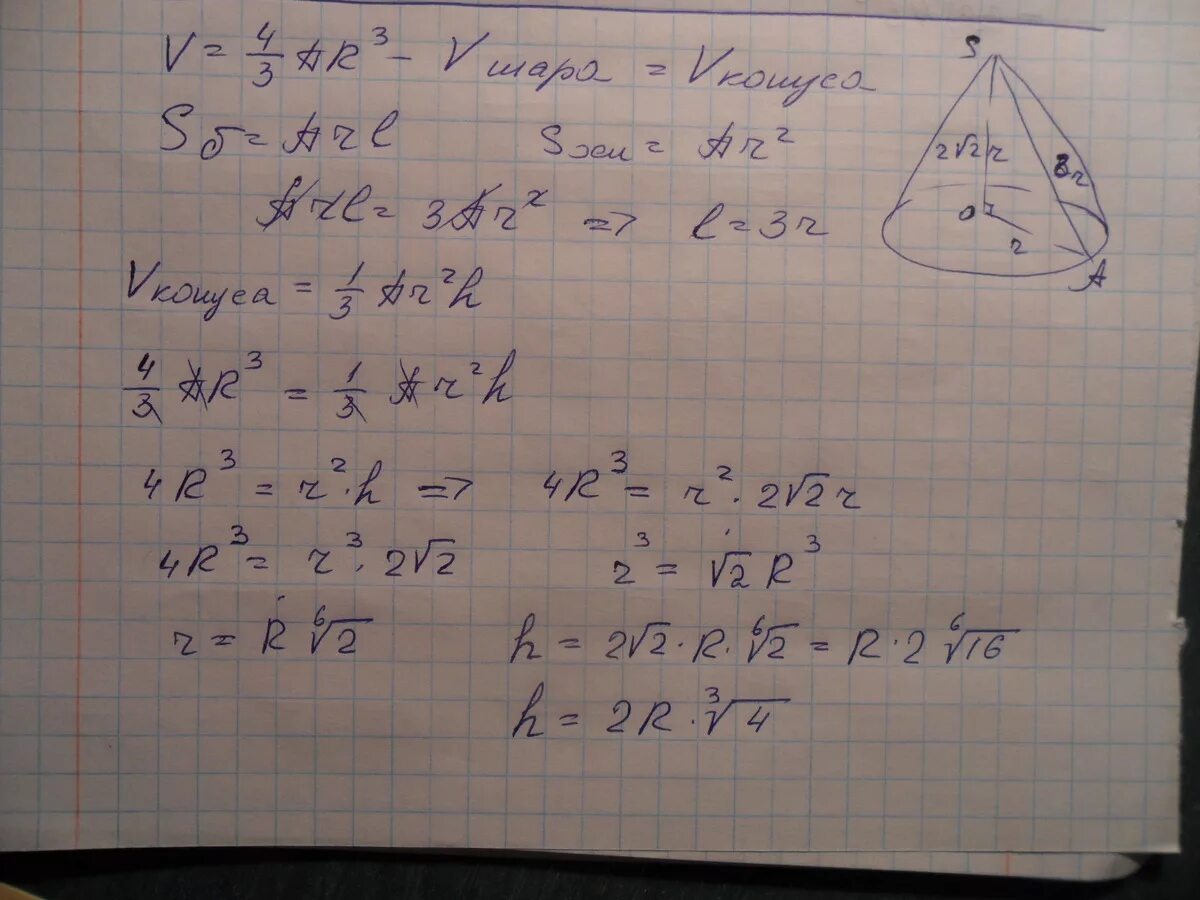 V = 4/3 πR³ - V шара = V конуса
Sб = πrl    Sосн = πr²
πrl = 3πr² => l = 3r
V конуса = 1/3 πr²h
4/3 πR³ = 1/3 πr²h
4R³ = r²·h => 4R³ = r²·2√2r
4R³ = r³·2√2    r³ = √2 R³
r = R ⁶√2    h = 2√2·R·⁶√2 = R·2 ⁶√16
h = 2R·³√4
S
2√2r
3r
O
r
A